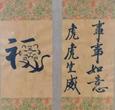 福
事事如意
虎虎生威